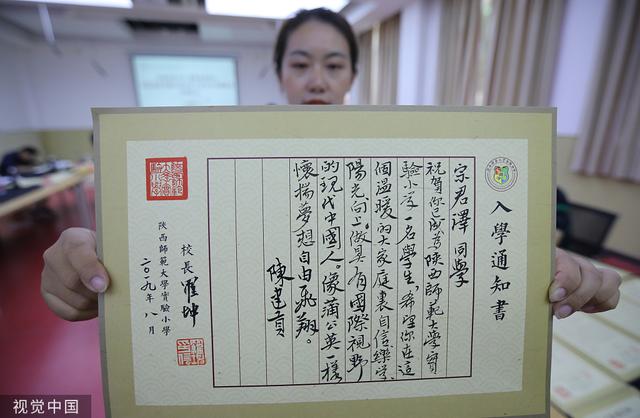 入學通知書
宗君澤 同學
祝賀你已成為陝西師範大學實
驗小學一名學生，希望你在這
個溫暖的大家庭裏自信樂學、
陽光向上。做具有國際視野
的現代中國人。像蒲公英一樣
懷揣夢想自由飛翔。
陳建貢
校長
陝西師範大學實驗小學
二〇一九年八月
视觉中国